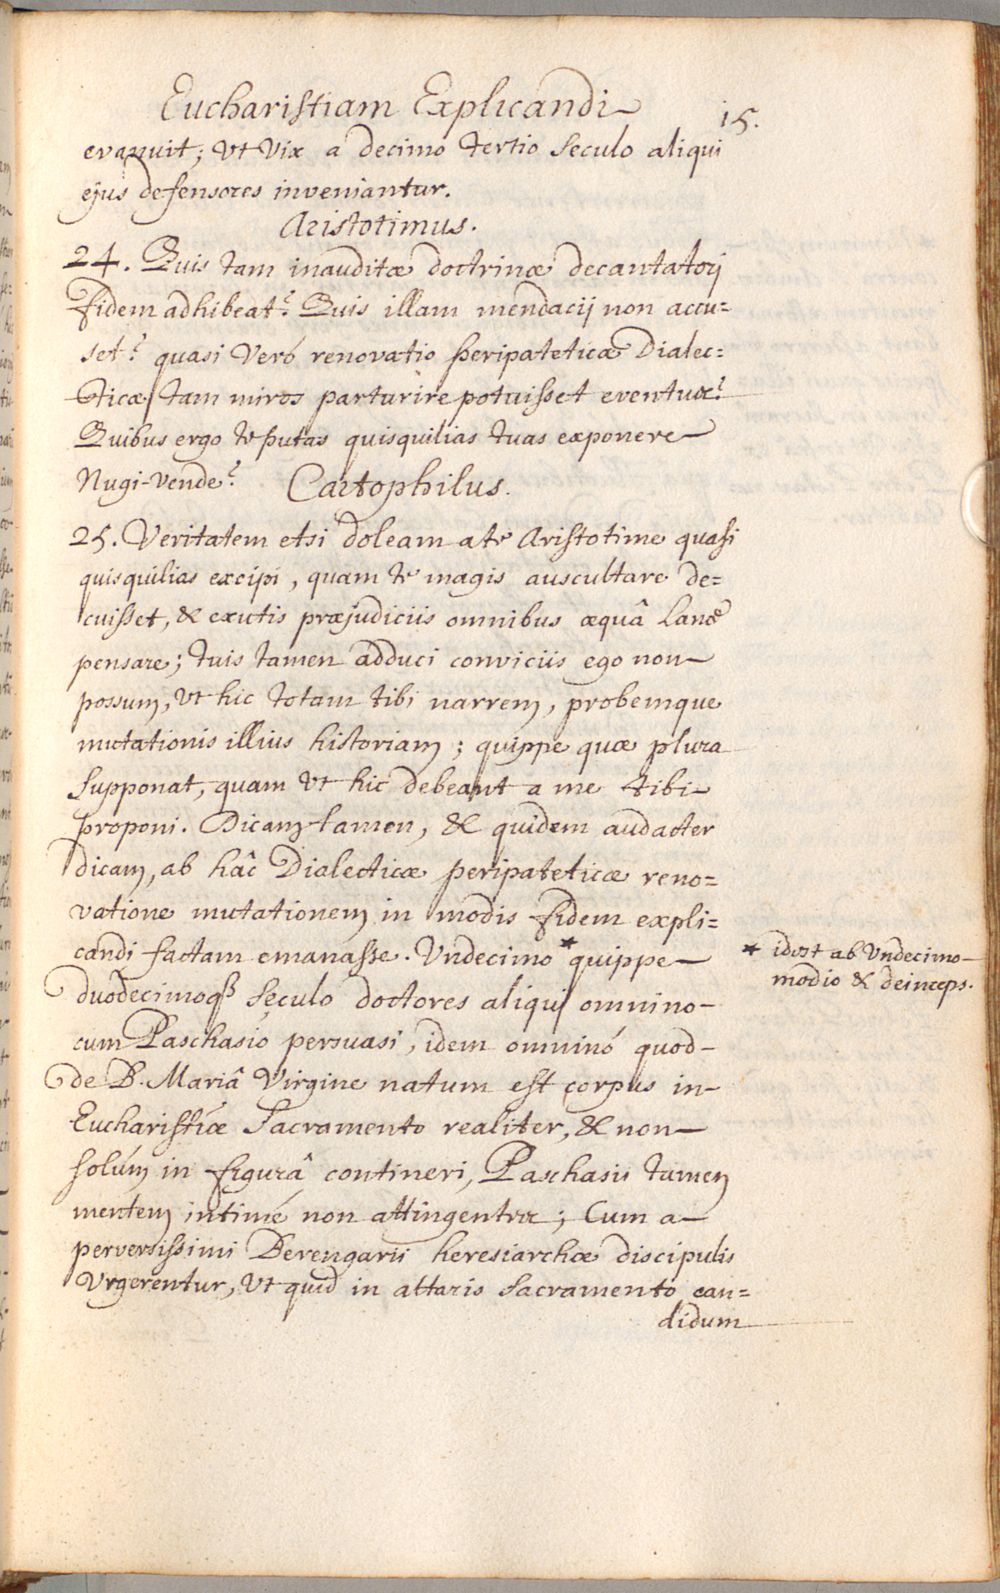 Eucharistiam Explicandi
15.
evanuit; Vt Vix a decimo tertio seculo aliqui
ejus defensores inveniantur.
Aristotimus.
24. Quis tam inauditæ doctrinæ decantatorij
fidem adhibeat? Quis illam mendacij non accu=
set? quasi Veró renovatio peripateticæ Dialec=
ticæ tam miros parturire potuisset eventus?
Quibus ergo te putas quisquilias tuas exponere
Nugi-vende?
Cartophilus.
25. Veritatem etsi doleam a te Aristotime quasi
quisquilias excipi, quam te magis auscultare de=
cuisset, & exutis præjudiciis omnibus æquâ Lance
pensare; tuis tamen adduci conviciis ego non
possum, Vt hic totam tibi narrem, probemque
mutationis illius historiam; quippe quæ plura
supponat, quam Vt hic debeant a me tibi
proponi. Dicam tamen, & quidem audacter
dicam, ab hâc Dialecticæ peripateticæ reno=
vatione mutationem in modis fidem expli=
candi factam emanasse. Undecimo * quippe
duodecimoq3 seculo doctores aliqui omnino
cum Paschasio persuasi, idem omninó quod
de B. Mariâ Virgine natum est corpus in
Eucharistiæ Sacramento realiter, & non
solúm in figurâ contineri, Paschasii tamen
mentem intimé non attingentur; Cum a
perversissimi Berengarii heresiarchæ discipulis
Vrgerentur, Vt quid in altaris sacramento can=
didum
* idest ab Undecimo
modio & deinceps.